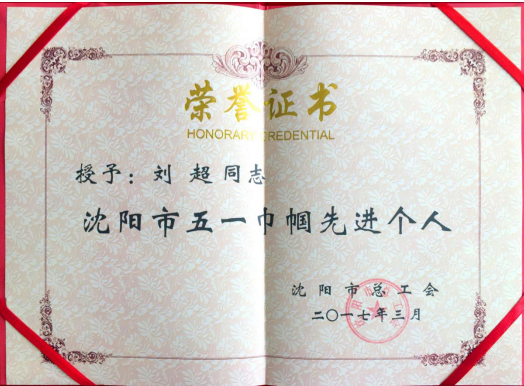 荣誉证书
HONORARY CREDENTIAL
授予：刘 超同志
沈阳市五一巾帼先进个人
沈阳市总工会
二〇一七年三月